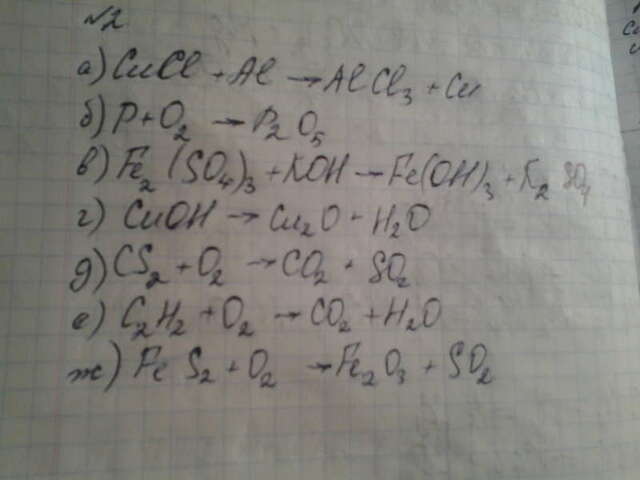 №2
а) CuCl + Al → AlCl₃ + Cu
б) P + O₂ → P₂O₅
в) Fe₂(SO₄)₃ + KOH → Fe(OH)₃ + K₂SO₄
г) CuOH → Cu₂O + H₂O
д) CS₂ + O₂ → CO₂ + SO₂
е) C₂H₂ + O₂ → CO₂ + H₂O
ж) FeS₂ + O₂ → Fe₂O₃ + SO₂